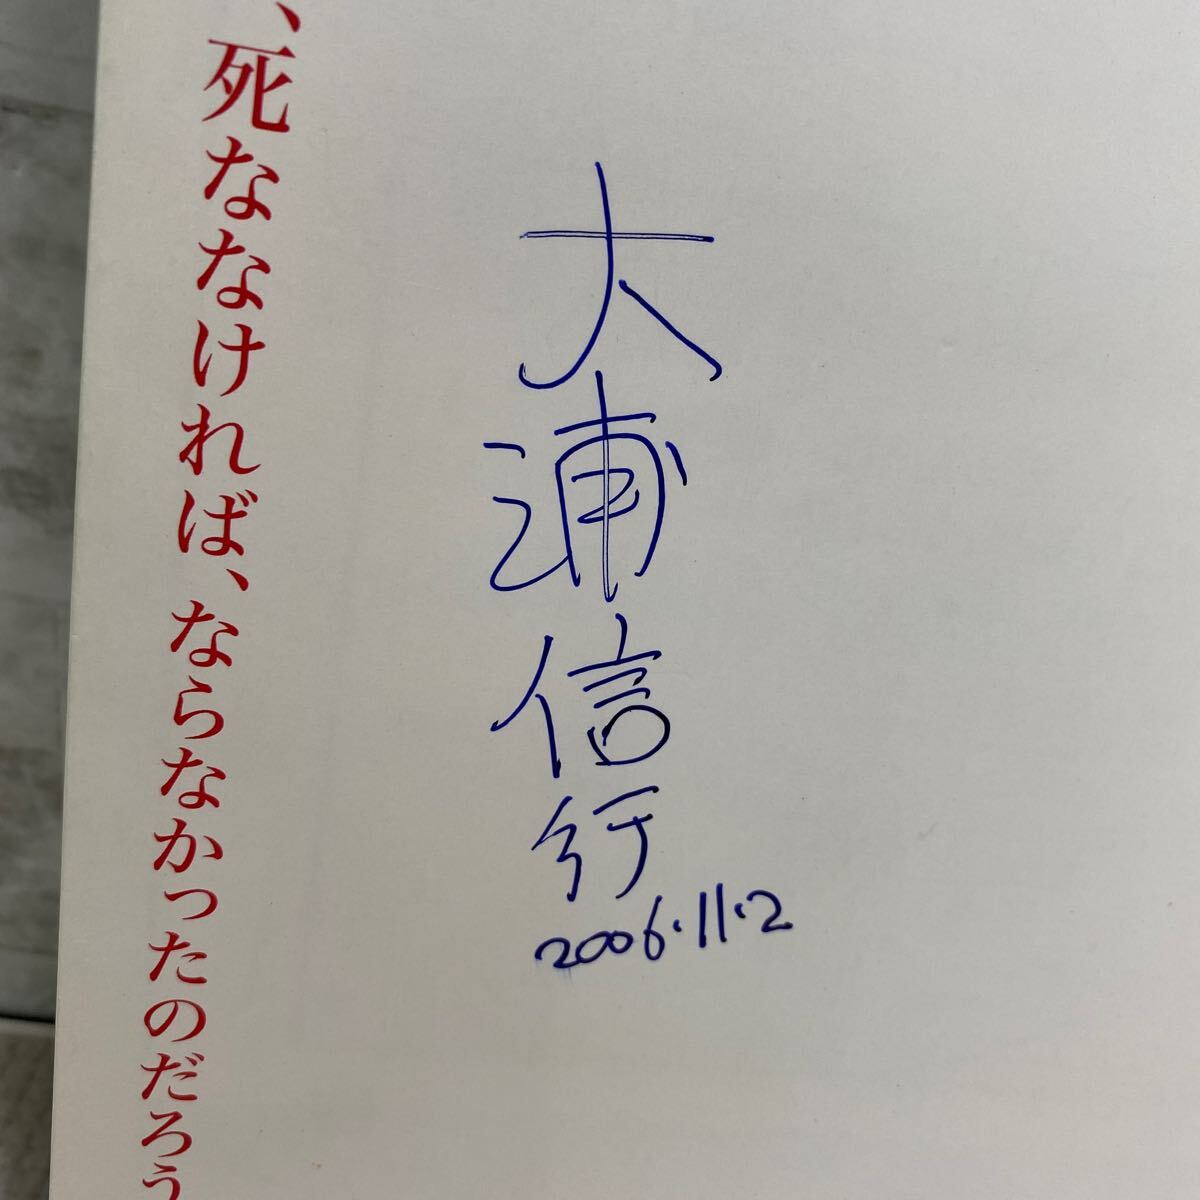 大浦信行
2006.11.2
、死ななければ、ならなかったのだろう